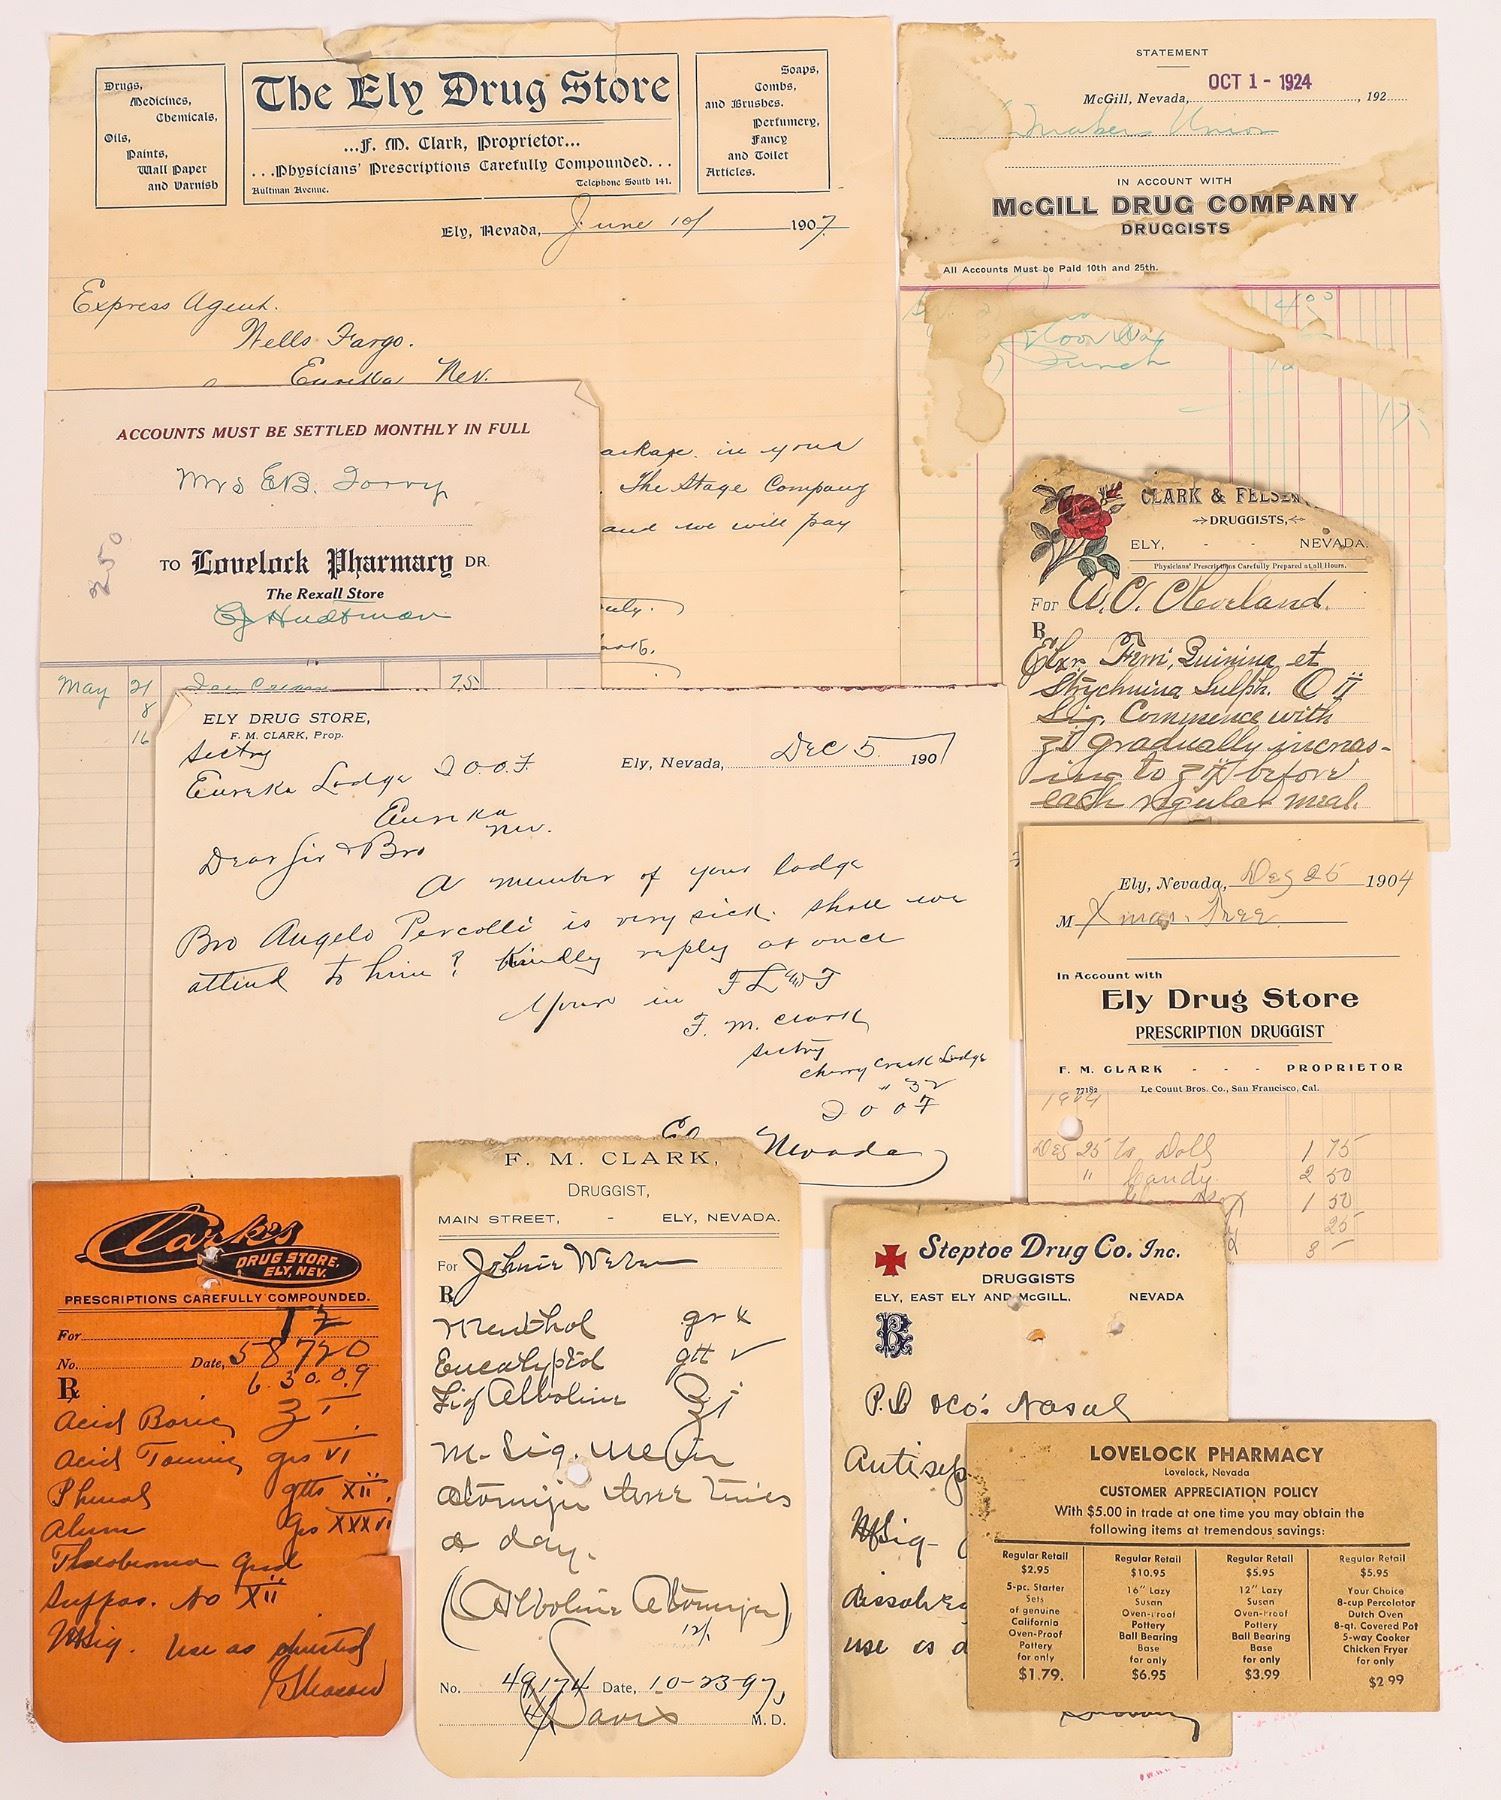 Drugs,
Medicines,
Chemicals,
Oils,
Paints,
Wall Paper
and Varnish
The Ely Drug Store
...F. M. Clark, Proprietor...
...Physicians' Prescriptions Carefully Compounded...
Aultman Avenue. Telephone South 141.
Soaps,
Combs,
and Brushes.
Perfumery,
Fancy
and Toilet
Articles.
Ely, Nevada, June 10/ 1907.
Express Agent.
Wells Fargo.
Eureka Nev.
in your
The Stage Company
and we will pay
STATEMENT
McGill, Nevada, OCT 1 - 1924, 192
Union
IN ACCOUNT WITH
McGILL DRUG COMPANY
DRUGGISTS
All Accounts Must be Paid 10th and 25th.
ACCOUNTS MUST BE SETTLED MONTHLY IN FULL
Mrs E.B.
250
TO Lovelock Pharmacy DR.
The Rexall Store
May 21 Ice Cream 75
8
16
CLARK & FELSEN
DRUGGISTS,
ELY, - - NEVADA.
Physicians' Prescriptions Carefully Prepared at all Hours.
For A. C. Cleveland.
R
Elix. Ferri, Quinina, et
Strychnina Sulph.
Sig. Commence with
gradually increas-
ing to before
each regular meal.
ELY DRUG STORE,
F. M. CLARK, Prop.
Ely, Nevada, Dec 5 1907
Sectry
Eureka Lodge I.O.O.F
Eureka
Nev.
Dear Sir & Bro
A member of your lodge
Bro Angelo Percolli is very sick. Shall we
attend to him? Kindly reply at once
Yours in F L & T
F. M. Clark
Sectry
Cherry Creek Lodge
" 32
I O O F
Nevada
Ely, Nevada, Dec 25 1904
M Xmas. Tree
In Account with
Ely Drug Store
PRESCRIPTION DRUGGIST
F. M. CLARK - - - PROPRIETOR
77182 Le Count Bros. Co., San Francisco, Cal.
1904
Dec 25 To Doll 1 75
" Candy 2 50
1 50
25
3 –
Clark's
DRUG STORE.
ELY, NEV.
PRESCRIPTIONS CAREFULLY COMPOUNDED.
For
No. Date, 58720
Rx 6.30.09
Acid Boric ʒ I
Acid Tannic grs VI
Phenol gtts XII
Alum grs XXXVI
Theobroma
Suppos. No XII
Sig. Use as directed
F. M. CLARK,
DRUGGIST,
MAIN STREET, - ELY, NEVADA.
For Johnie Weber
R
Menthol gr x
Eucalyptol gtt v
Liq Alboline
M. Sig. Use in
atomizer three times
a day.
(Alboline Atomizer)
No. 49,174 Date, 10-23-97,
Davis M. D.
Steptoe Drug Co. Inc.
DRUGGISTS
ELY, EAST ELY AND McGILL, NEVADA
R
P.D &Co's Nasal
Antisep
Sig-
dissolve
use as d
LOVELOCK PHARMACY
Lovelock, Nevada
CUSTOMER APPRECIATION POLICY
With $5.00 in trade at one time you may obtain the
following items at tremendous savings:
Regular Retail
$2.95
5-pc. Starter
Sets
of genuine
California
Oven-Proof
Pottery
for only
$1.79.
Regular Retail
$10.95
16" Lazy
Susan
Oven-Proof
Pottery
Ball Bearing
Base
for only
$6.95
Regular Retail
$5.95
12" Lazy
Susan
Oven-Proof
Pottery
Ball Bearing
Base
for only
$3.99
Regular Retail
$5.95
Your Choice
8-cup Percolator
Dutch Oven
8-qt. Covered Pot
5-way Cooker
Chicken Fryer
for only
$2 99